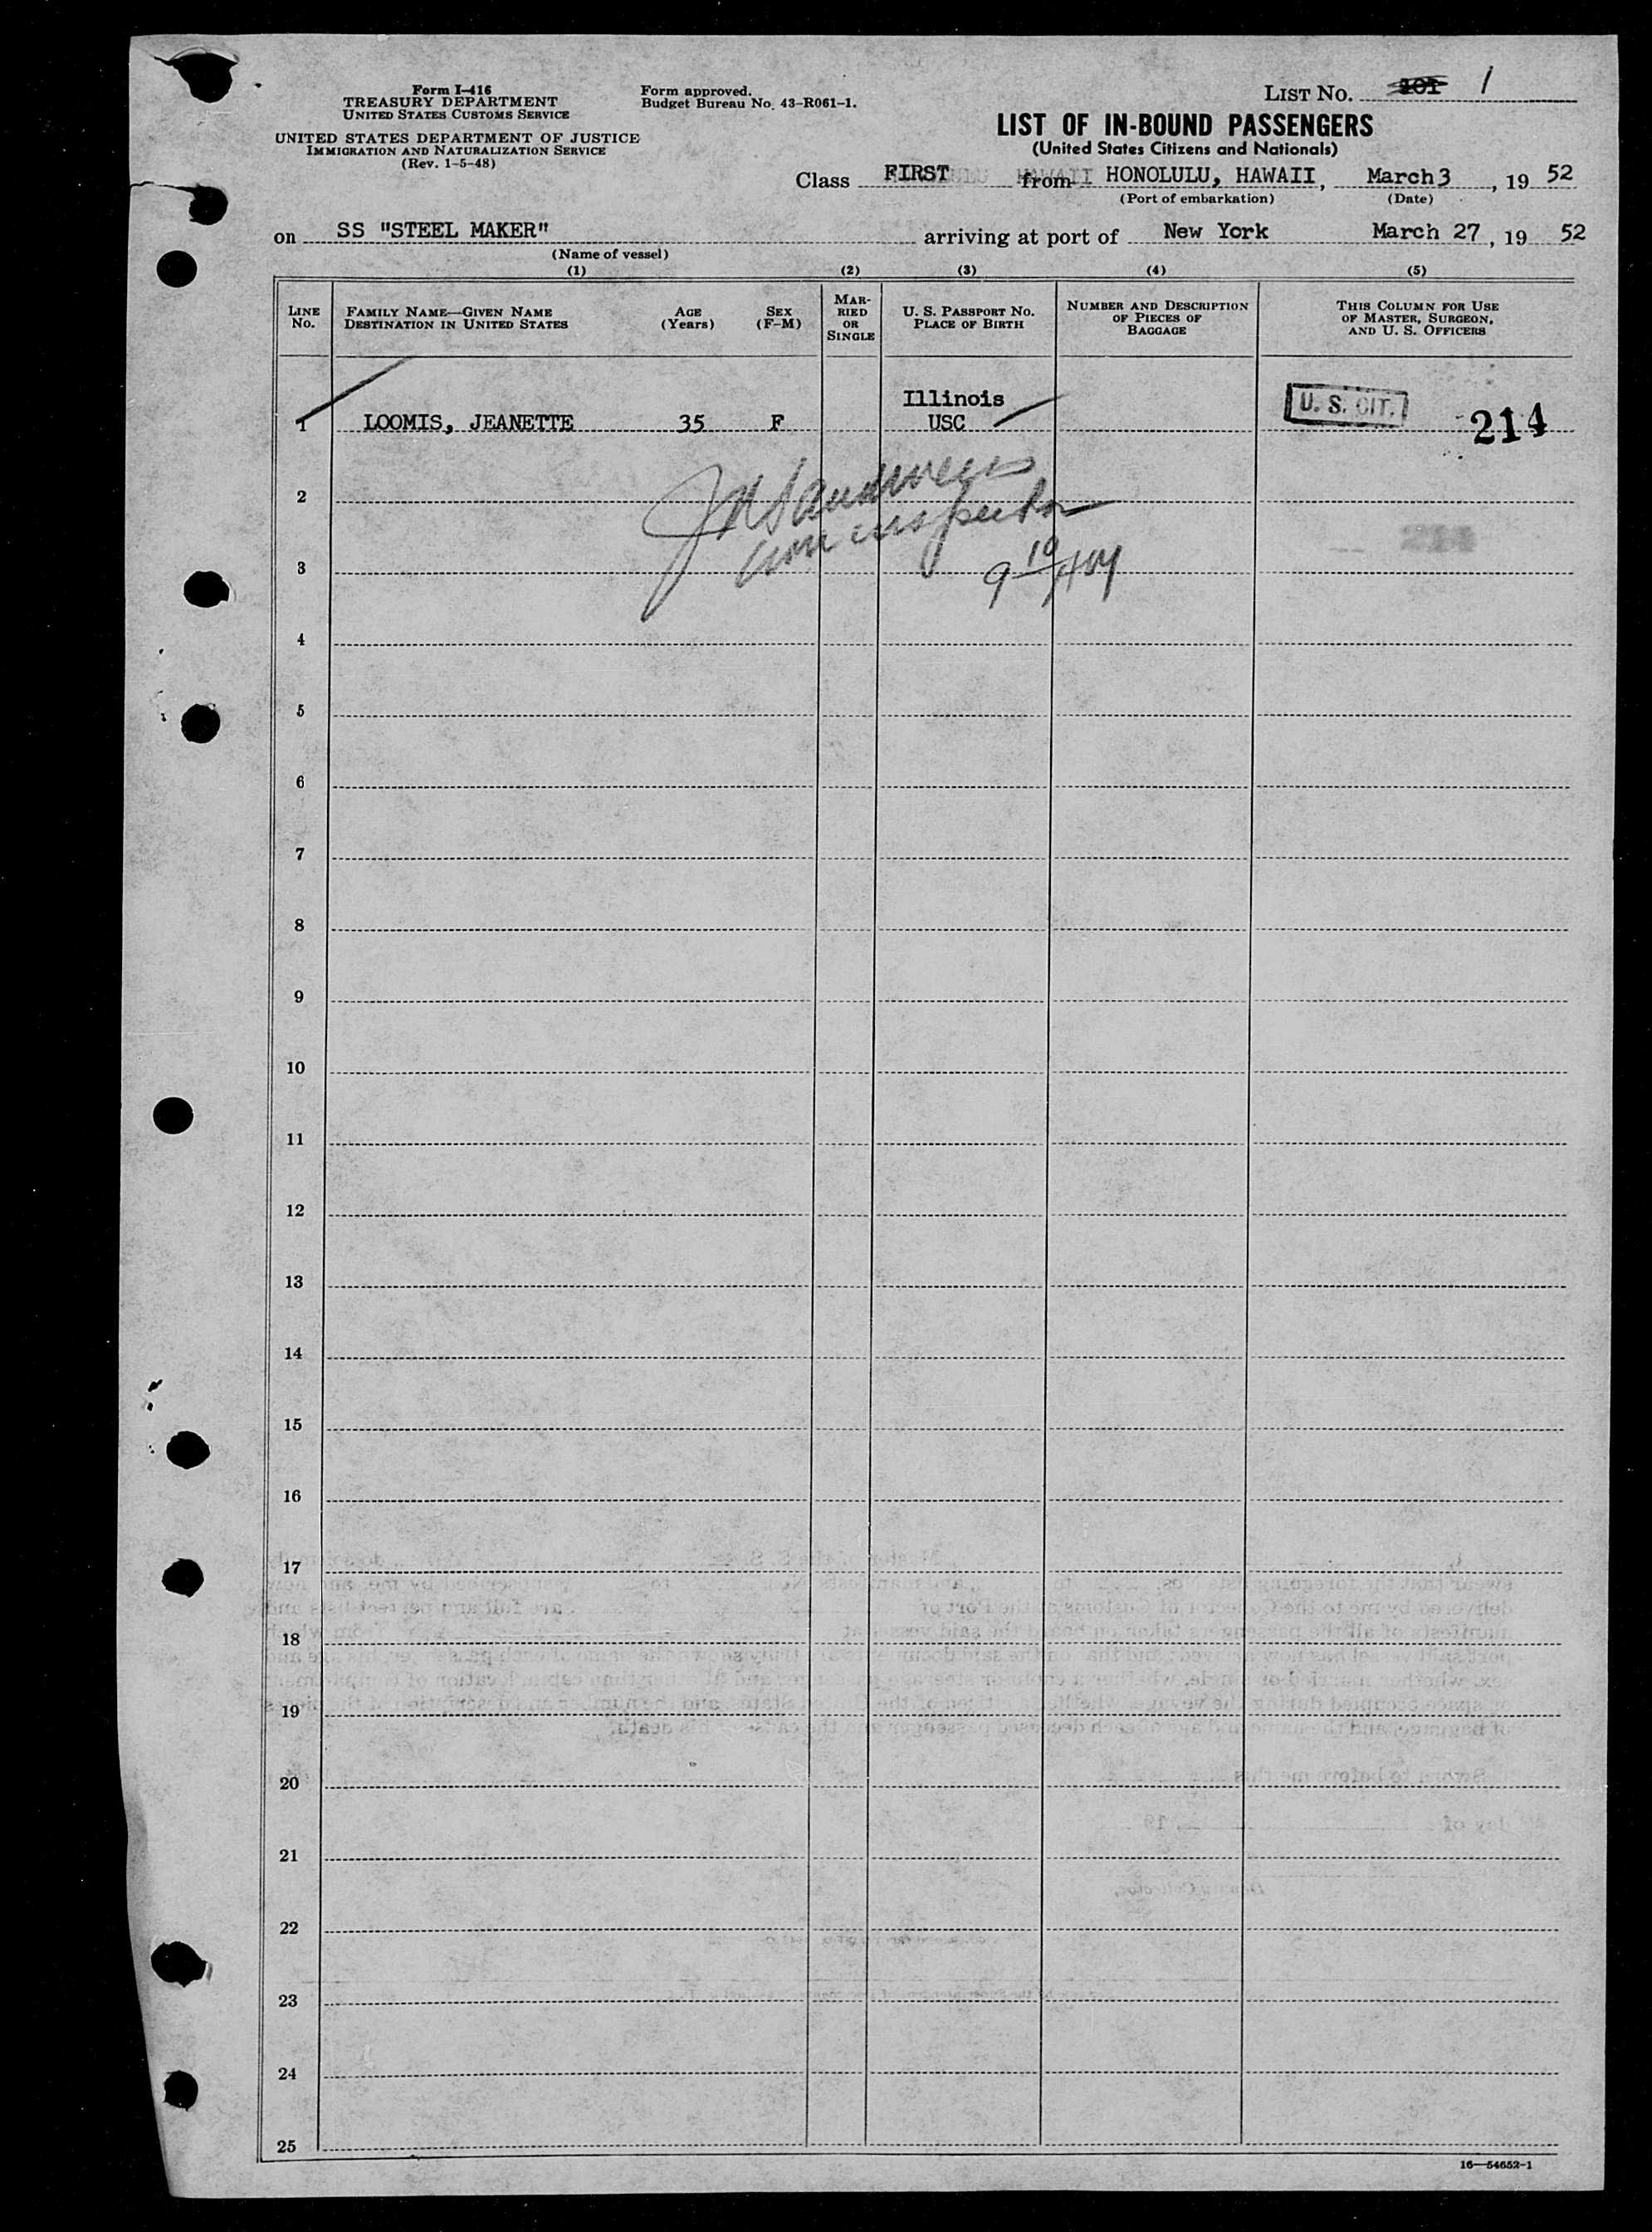 Form I-416
TREASURY DEPARTMENT
UNITED STATES CUSTOMS SERVICE
UNITED STATES DEPARTMENT OF JUSTICE
IMMIGRATION AND NATURALIZATION SERVICE
(Rev. 1-5-48)
Form approved.
Budget Bureau No. 43-R061-1.
LIST NO. 1
LIST OF IN-BOUND PASSENGERS
(United States Citizens and Nationals)
Class FIRST from HONOLULU, HAWAII, March 3, 19 52
(Port of embarkation) (Date)
on SS "STEEL MAKER" arriving at port of New York March 27, 19 52
(Name of vessel)
(1) (2) (3) (4) (5)
LINE NO.
FAMILY NAME—GIVEN NAME
DESTINATION IN UNITED STATES
AGE
(Years)
SEX
(F-M)
MAR-
RIED
OR
SINGLE
U. S. PASSPORT NO.
PLACE OF BIRTH
NUMBER AND DESCRIPTION
OF PIECES OF
BAGGAGE
THIS COLUMN FOR USE
OF MASTER, SURGEON,
AND U. S. OFFICERS
Illinois
1 LOOMIS, JEANETTE 35 F USC U. S. CIT. 214
2
inspector
3
4
5
6
7
8
9
10
11
12
13
14
15
16
17
18
19
20
21
22
23
24
25
16—54652-1